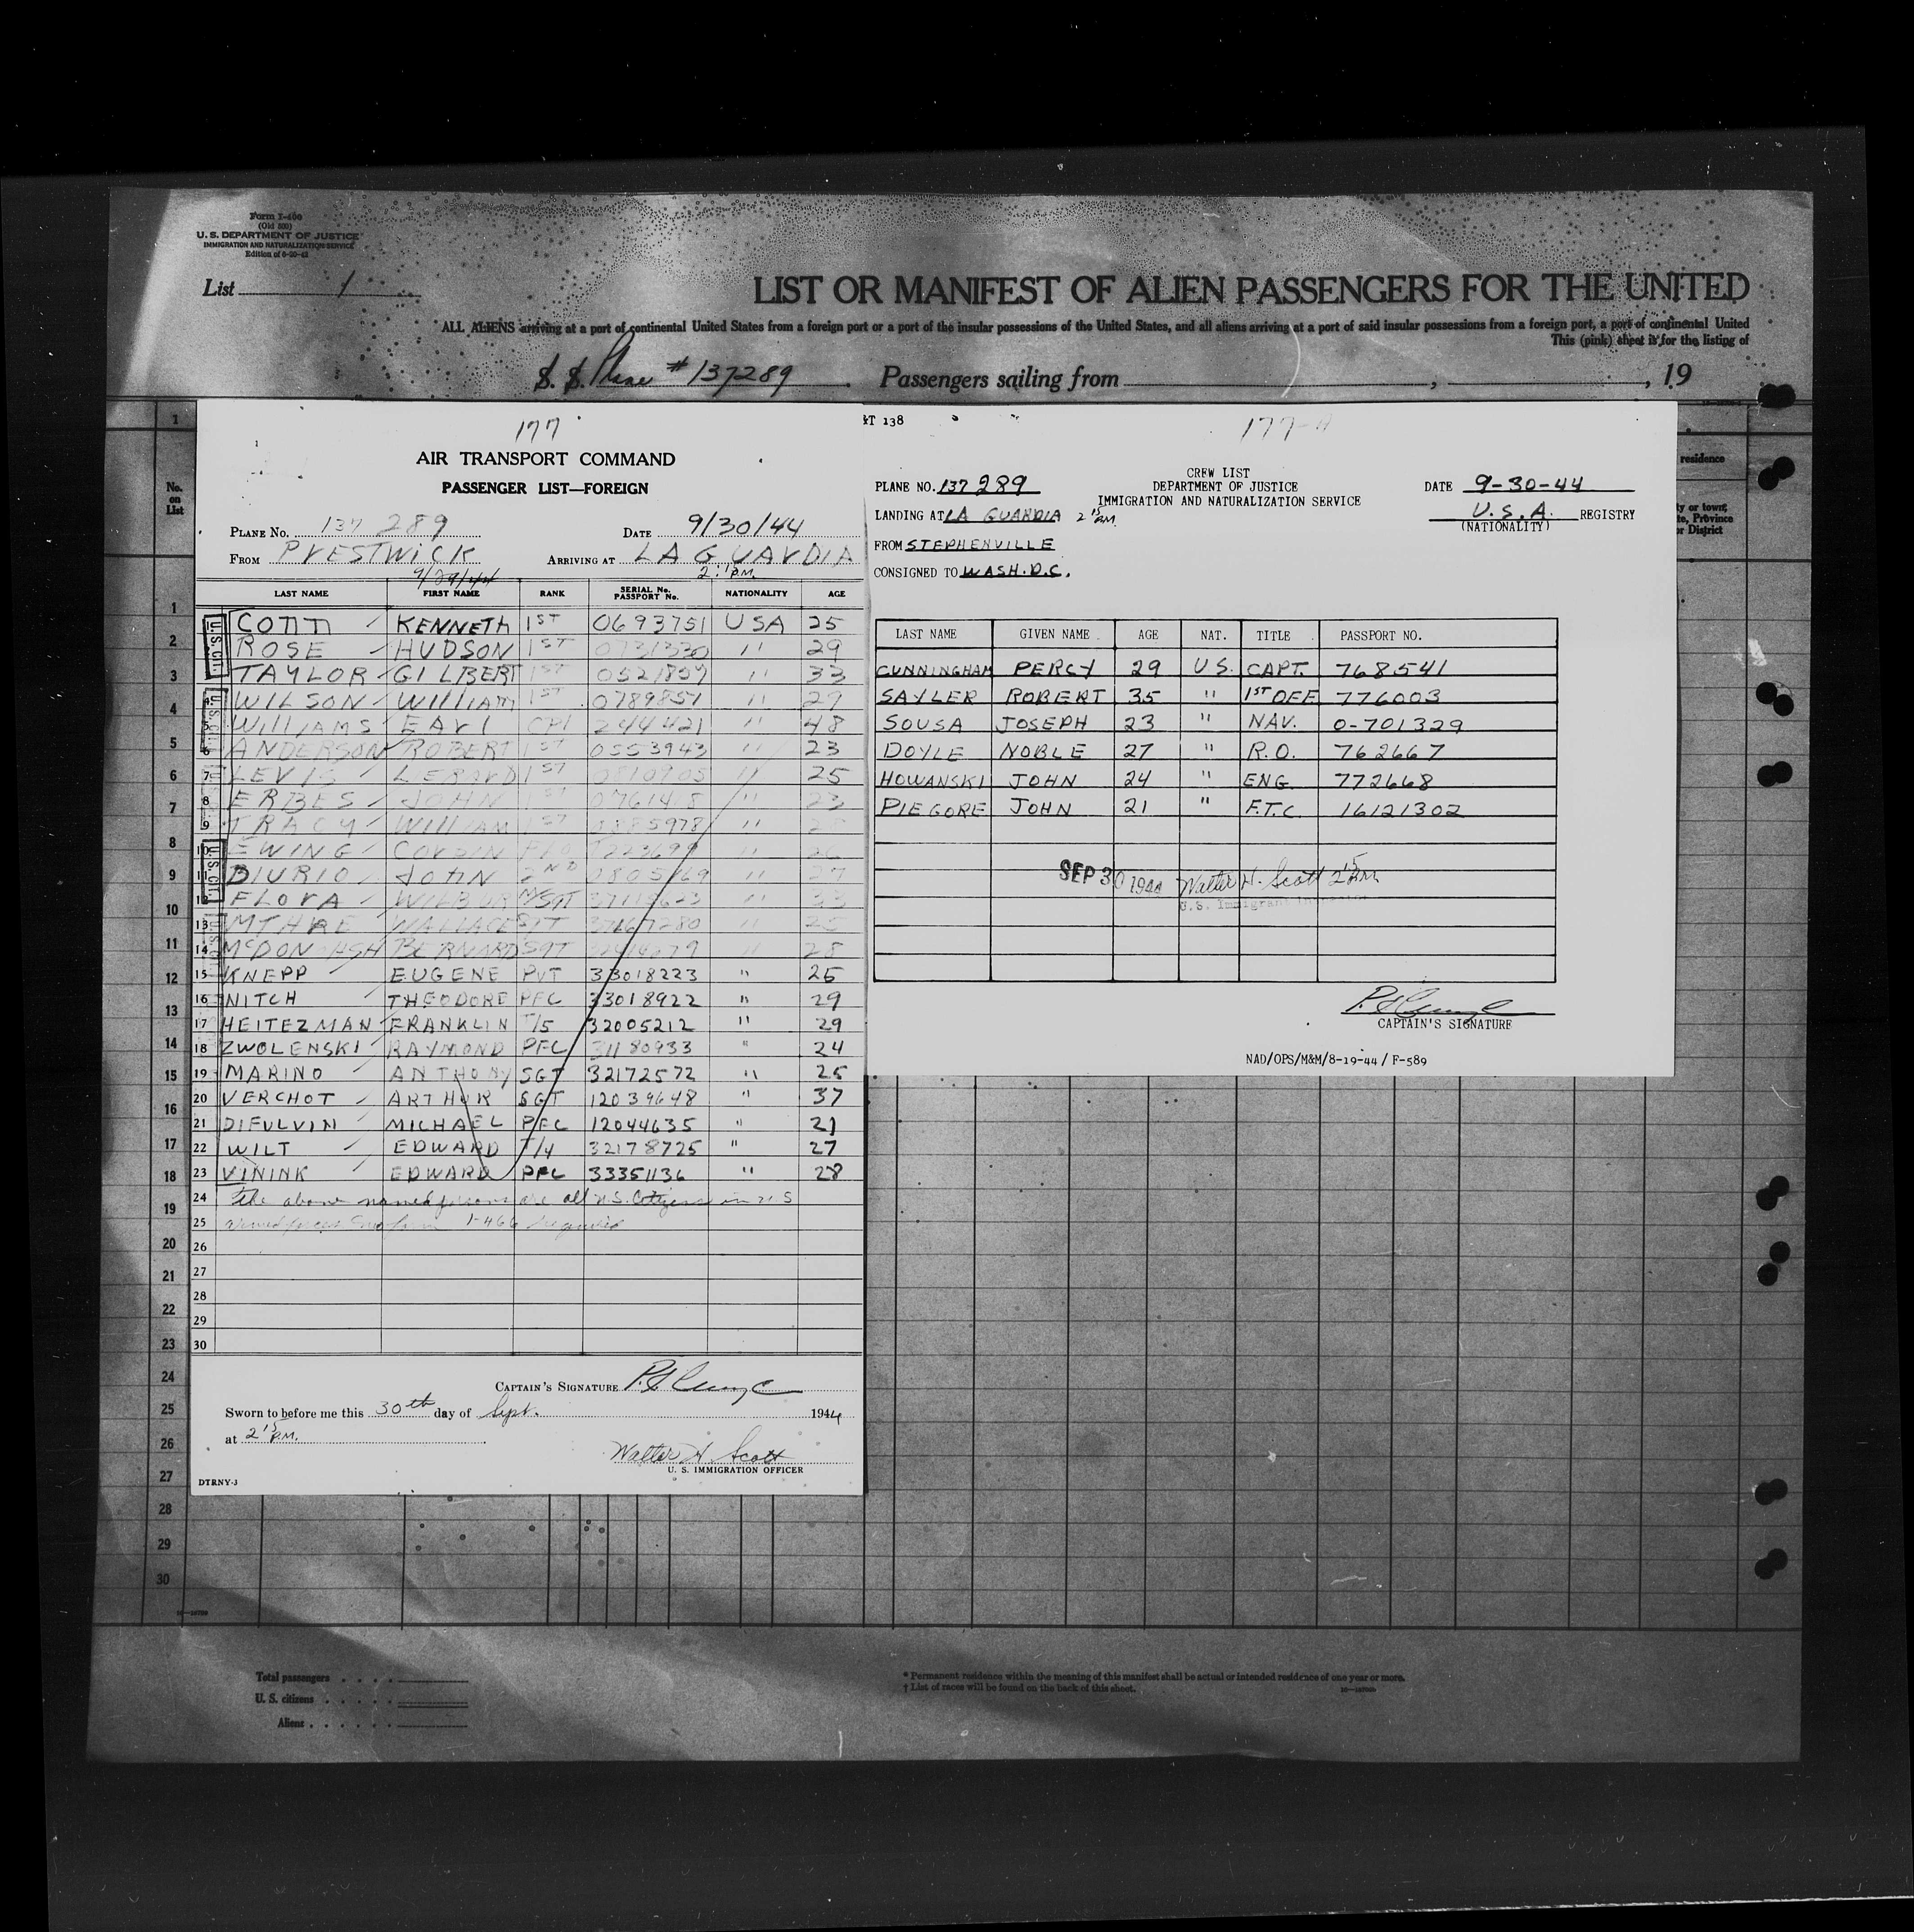 Form I-400
(Old 500)
U. S. DEPARTMENT OF JUSTICE
IMMIGRATION AND NATURALIZATION SERVICE
List 1
LIST OR MANIFEST OF ALIEN PASSENGERS FOR THE UNITED
ALL ALIENS arriving at a port of continental United States from a foreign port or a port of the insular possessions of the United States, and all aliens arriving at a port of said insular possessions from a foreign port, a port of continental United
This (pink) sheet is for the listing of
S. S. Plane # 137289 Passengers sailing from , , 19
No. on List
residence
177
AIR TRANSPORT COMMAND
PASSENGER LIST—FOREIGN
PLANE NO. 137 289 DATE 9/30/44
FROM PRESTWICK ARRIVING AT LA GUARDIA
9/29/44 2:15 P.M.
LAST NAME FIRST NAME RANK SERIAL No. PASSPORT No. NATIONALITY AGE
1 KENNETH 1ST 0693751 USA 25
2 ROSE HUDSON 1ST " 29
3 TAYLOR GILBERT 1ST " 33
4 WILSON WILLIAM 1ST 0789857 " 29
5 WILLIAMS EARL CPL 244421 " 48
6 ANDERSON ROBERT 1ST 0553943 " 23
7 1ST " 25
8 ERBES JOHN 1ST " 23
9 TRACY WILLIAM 1ST "
10 EWING "
11 DIURIO JOHN 2ND " 27
12 FLORA WILBUR M/SGT " 33
13 WALLACE 37167280 " 25
14 BERNARD SGT " 28
15 KNEPP EUGENE PVT 33018223 " 25
16 NITCH THEODORE PFC 33018922 " 29
17 HEITEZMAN FRANKLIN T/5 32005212 " 29
18 ZWOLENSKI RAYMOND PFC 31180933 " 24
19 MARINO ANTHONY SGT 32172572 " 25
20 VERCHOT ARTHUR SGT 12039648 " 37
21 DIFULVIN MICHAEL PFC 12044635 " 21
22 WILT EDWARD T/4 32178725 " 27
23 VININK EDWARD PFC 33351136 " 28
24 The above named persons are all U.S. Citizens in U.S
25 armed forces I-466 required
26
27
28
29
30
CAPTAIN'S SIGNATURE
Sworn to before me this 30th day of Sept. 1944
at 2 15 P.M.
Walter H Scott
U. S. IMMIGRATION OFFICER
DTRNY-3
138
177-A
CREW LIST
PLANE NO. 137 289 DEPARTMENT OF JUSTICE DATE 9-30-44
IMMIGRATION AND NATURALIZATION SERVICE
LANDING AT LA GUARDIA 2 15 P.M. U.S.A. REGISTRY
(NATIONALITY)
FROM STEPHENVILLE
CONSIGNED TO WASH.D.C.
LAST NAME GIVEN NAME AGE NAT. TITLE PASSPORT NO.
CUNNINGHAM PERCY 29 U.S. CAPT. 768541
SAYLER ROBERT 35 " 1ST OFF 776003
SOUSA JOSEPH 23 " NAV. 0-701329
DOYLE NOBLE 27 " R.O. 762667
HOWANSKI JOHN 24 " ENG. 772668
PIEGORE JOHN 21 " F.T.C. 16121302
SEP 30 1944 Walter H. Scott 2 15 pm
U.S. Immigrant Inspector
CAPTAIN'S SIGNATURE
NAD/OPS/M&M/8-19-44 / F-589
Total passengers
U. S. citizens
Aliens
* Permanent residence within the meaning of this manifest shall be actual or intended residence of one year or more.
† List of races will be found on the back of this sheet.